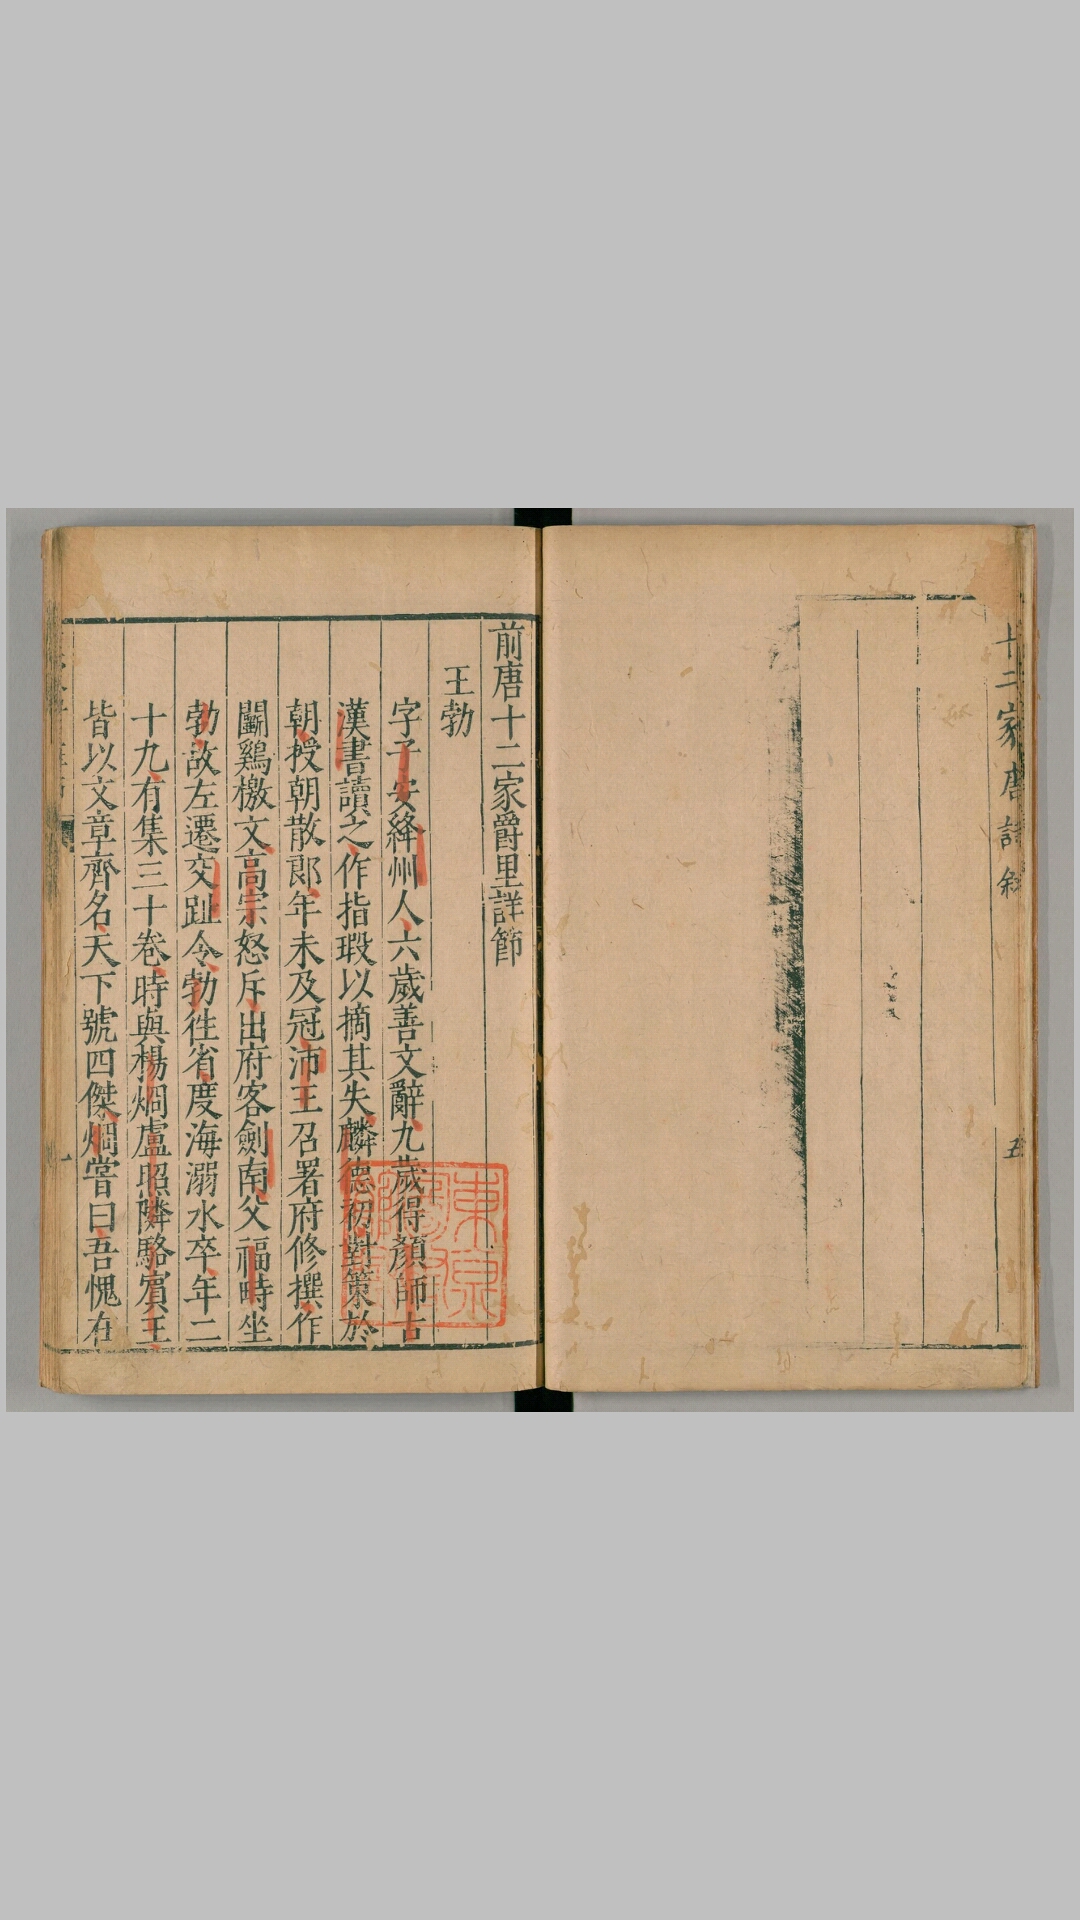 十二家唐詩叙
五
前唐十二家爵里詳節
王勃
字子安絳州人六歲善文辭九歲得顏師古
漢書讀之作指瑕以摘其失麟德初對策於
朝授朝散郎年未及冠沛王召署府修撰作
鬬鷄檄文高宗怒斥出府客劍南父福畤坐
勃故左遷交趾令勃往省度海溺水卒年二
十九有集三十卷時與楊烱盧照隣駱賓王
皆以文章齊名天下號四傑烱嘗曰吾愧在
一